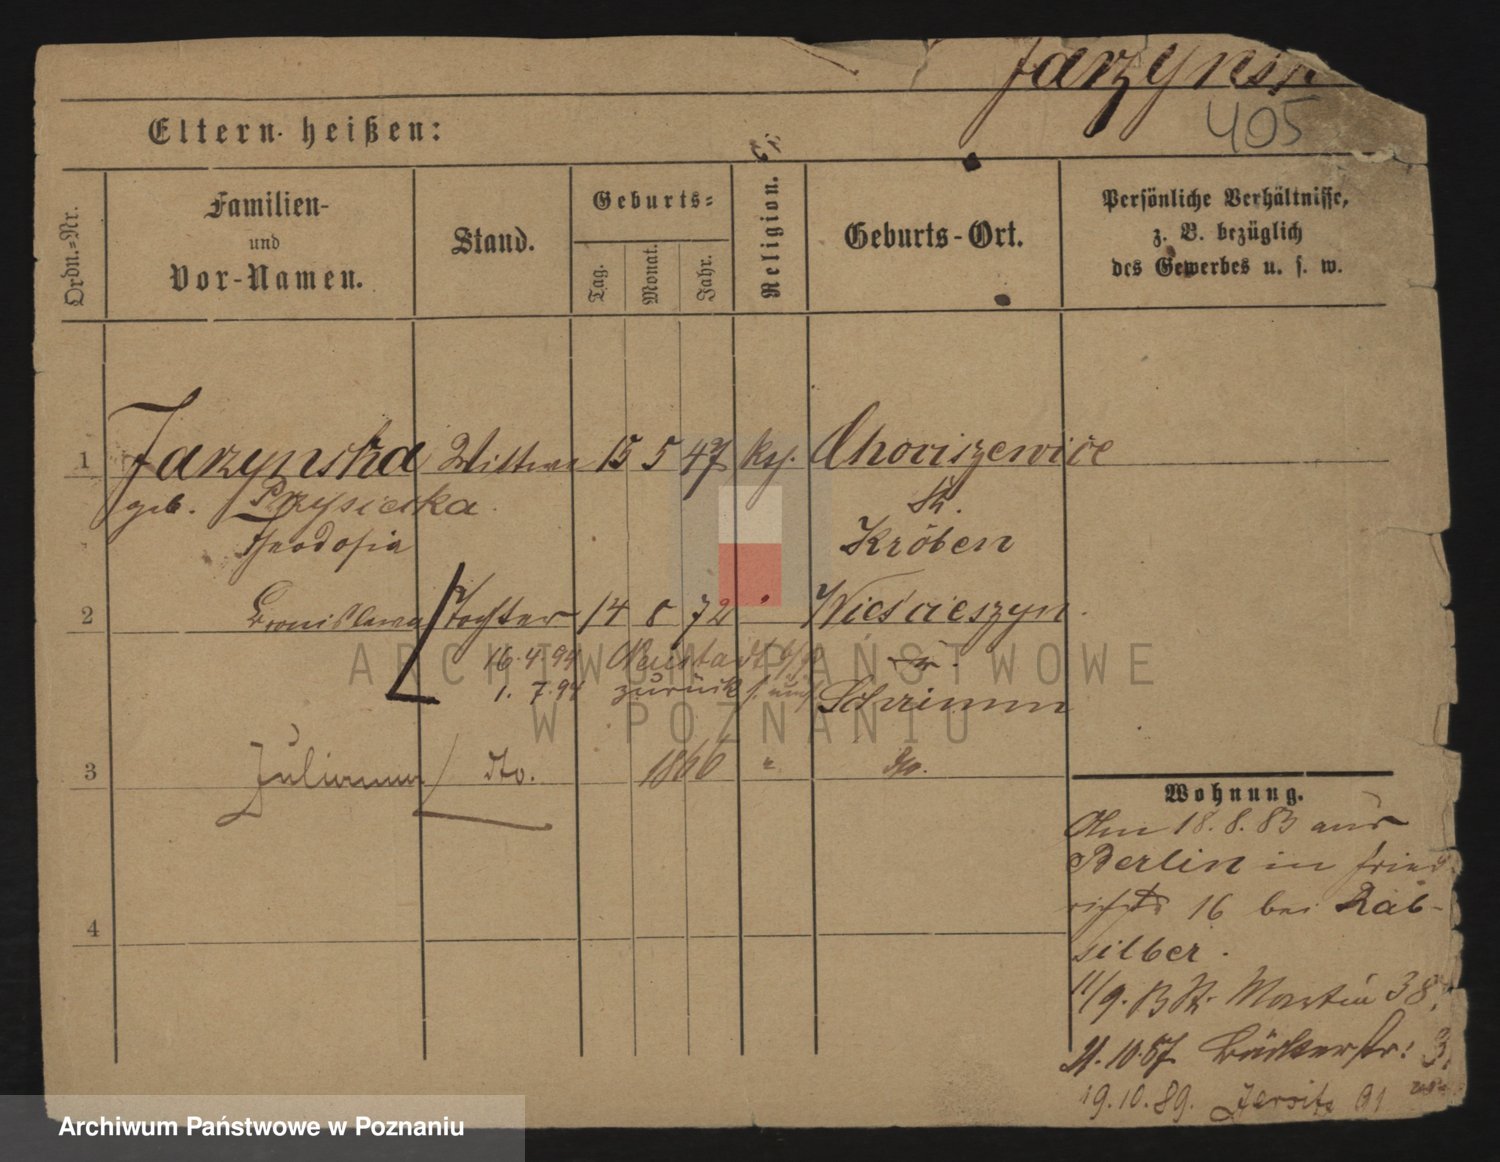 Jarzynsk
405
Eltern heißen:
Ordn.=Nr.
Familien-
und
Vor-Namen.
Stand.
Geburts=
Tag.
Monat.
Jahr.
Religion.
Geburts-Ort.
Persönliche Verhältnisse,
z. B. bezüglich
des Gewerbes u. s. w.
1 Jarzynska Wittwe 15 5 47 kth. Choriszewice
geb. Przysiecka. Kr.
Theodosia Kröben
2 Bronislawa Tochter 14 8 72 " Wieścieszyn.
16.4.94 Neustadt b/P. Kr.
1. 7.94 zurück Schrimm
3 Julianna dto. 1866 " dto.
4
Wohnung.
Am 18.8.83 aus
Berlin in Fried
richstr 16 bei Rab-
silber.
11/9. B St. Martin 38
21.10.87 Bäckerstr. 3
19.10.89. Jersitz 91
ARCHIWUM PAŃSTWOWE
W POZNANIU
Archiwum Państwowe w Poznaniu